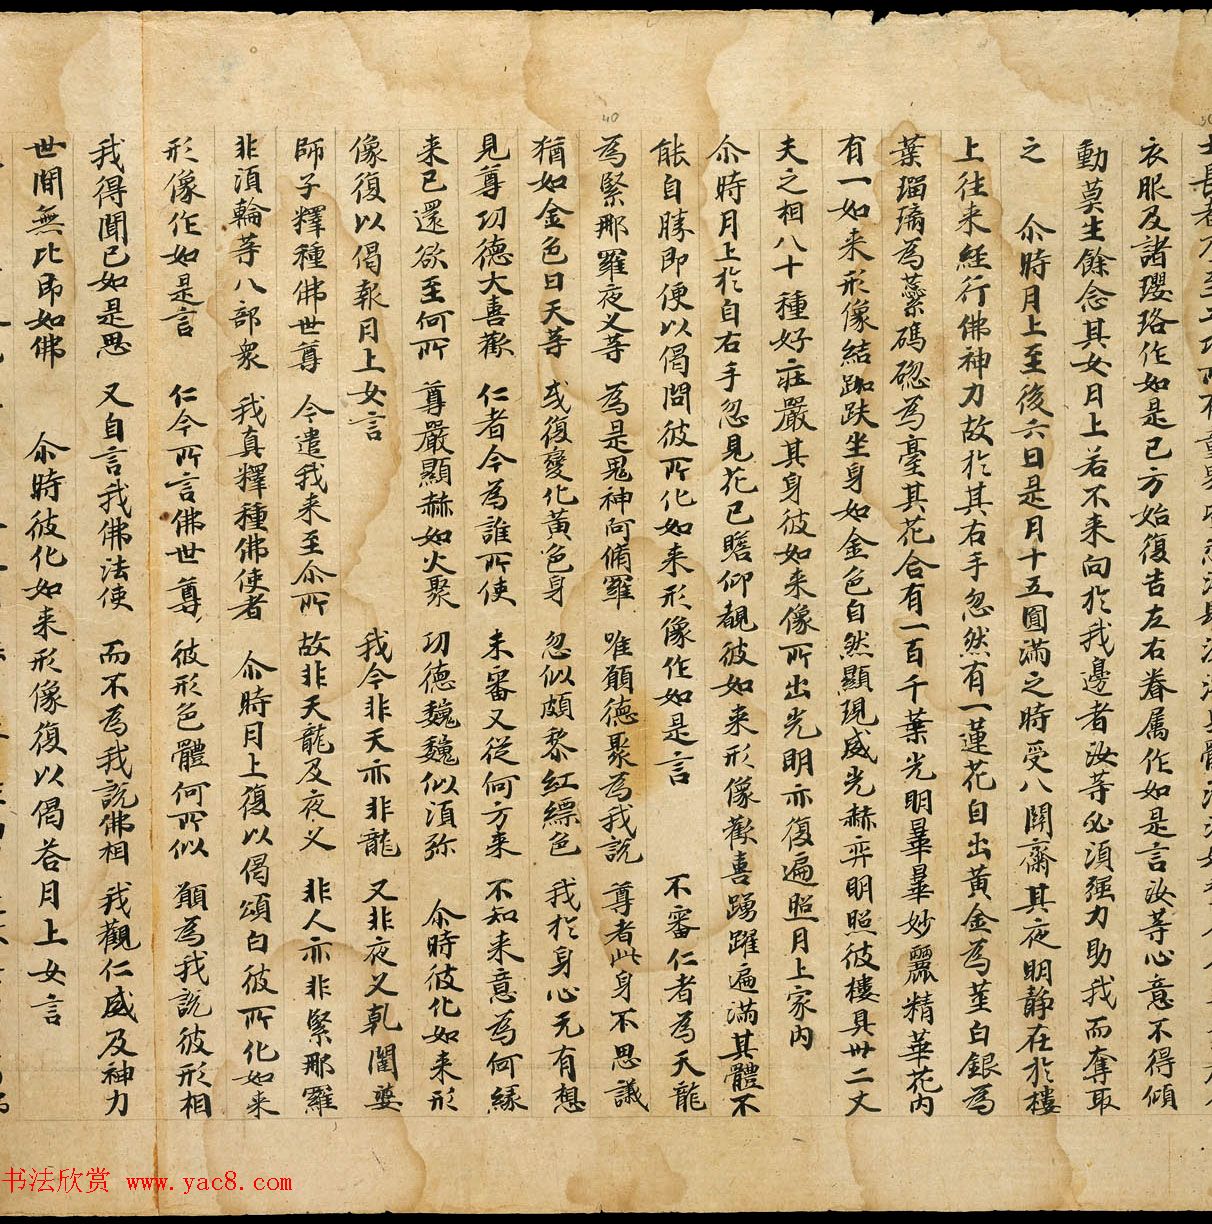 衣服及諸瓔珞作如是已方始復告左右眷属作如是言汝等心意不得傾
動莫生餘念其女月上若不来向於我邊者汝等必須强力助我而奪取
之　尒時月上至後六日是月十五圓滿之時受八關齋其夜明静在於樓
上往来經行佛神力故於其右手忽然有一蓮花自出黃金為莖白銀為
葉瑠璃為蘂碼碯為臺其花合有一百千葉光明曅曅妙麗精華花内
有一如来形像結跏趺坐身如金色自然顯現威光赫弈明照彼樓具卅二丈
夫之相八十種好莊嚴其身彼如来像所出光明亦復遍照月上家内
尒時月上於自右手忽見花已瞻仰覩彼如来形像歡喜踴躍遍滿其體不
能自勝即便以偈問彼所化如来形像作如是言　不審仁者為天龍
為緊那羅夜叉等　為是鬼神阿脩羅　唯願德聚為我說　尊者此身不思議
猶如金色日天等　或復變化黃色身　忽似頗黎紅縹色　我於身心无有想
見尊功德大喜歡　仁者今為誰所使　未審又從何方来　不知来意為何緣
来已還欲至何所　尊嚴顯赫如火聚　功德巍巍似須弥　尒時彼化如来形
像復以偈報月上女言　我今非天亦非龍　又非夜叉乹闥婆
師子釋種佛世尊　今遣我来至尒所　故非天龍及夜叉　非人亦非緊那羅
非須輪等八部衆　我真釋種佛使者　尒時月上復以偈頌白彼所化如来
形像作如是言　仁今所言佛世尊　彼形色體何所似　願為我說彼形相
我得聞已如是思　又自言我佛法使　而不為我說佛相　我觀仁威及神力
世間無比即如佛　尒時彼化如来形像復以偈荅月上女言
40
书法欣赏 www.yac8.com